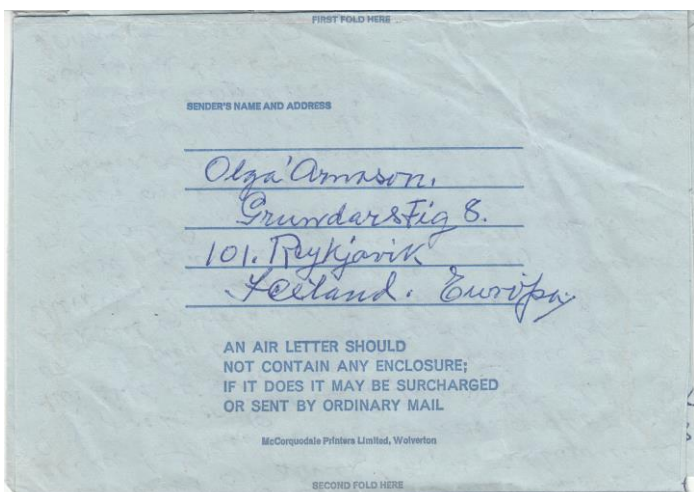 FIRST FOLD HERE
SENDER'S NAME AND ADDRESS
Olga Árnason.
Grundarstíg 8.
101. Reykjavik
Iceland. Evrópa
AN AIR LETTER SHOULD
NOT CONTAIN ANY ENCLOSURE;
IF IT DOES IT MAY BE SURCHARGED
OR SENT BY ORDINARY MAIL
McCorquodale Printers Limited, Wolverton
SECOND FOLD HERE